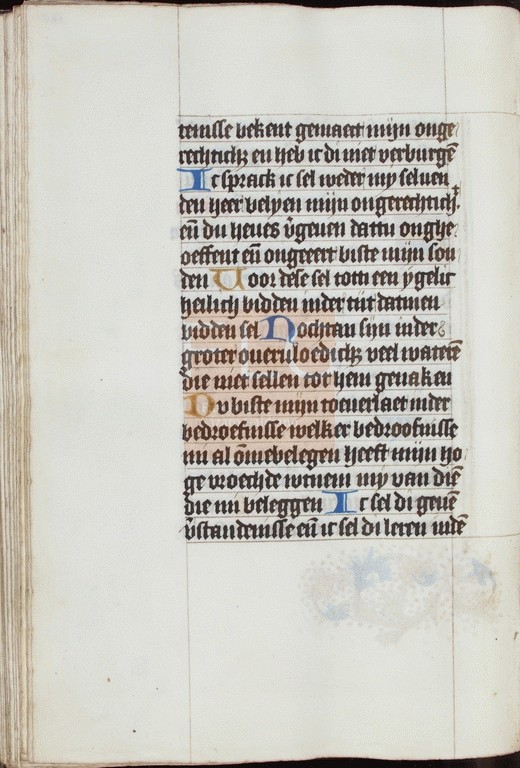 tenisse bekent gemaect mijn onge
rechticḩ en heb ic di niet verburgē
Ic sprack ic sel weder my seluen
den heer velyen mijn ongerechticḩ.
eñ du heues v̄geuen dattu onghe
oeffent eñ ongeeert biste mijn son
den Uoor dese sel totti een ygelic
heilich bidden inder tijt datmen
bidden sel Nochtan sijn inder
groter oueruloedicḩ veel waterē
die niet sellen tot hem genaken
Du biste mijn toeuerlaet inder
bedroefnisse welker bedroofnisse
mi al ōmebelegen heeft mijn ho
ge vroechde wtneem my van diē
die mi beleggen Ic sel di geuē
v̄standenisse eñ ic sel di leren indē